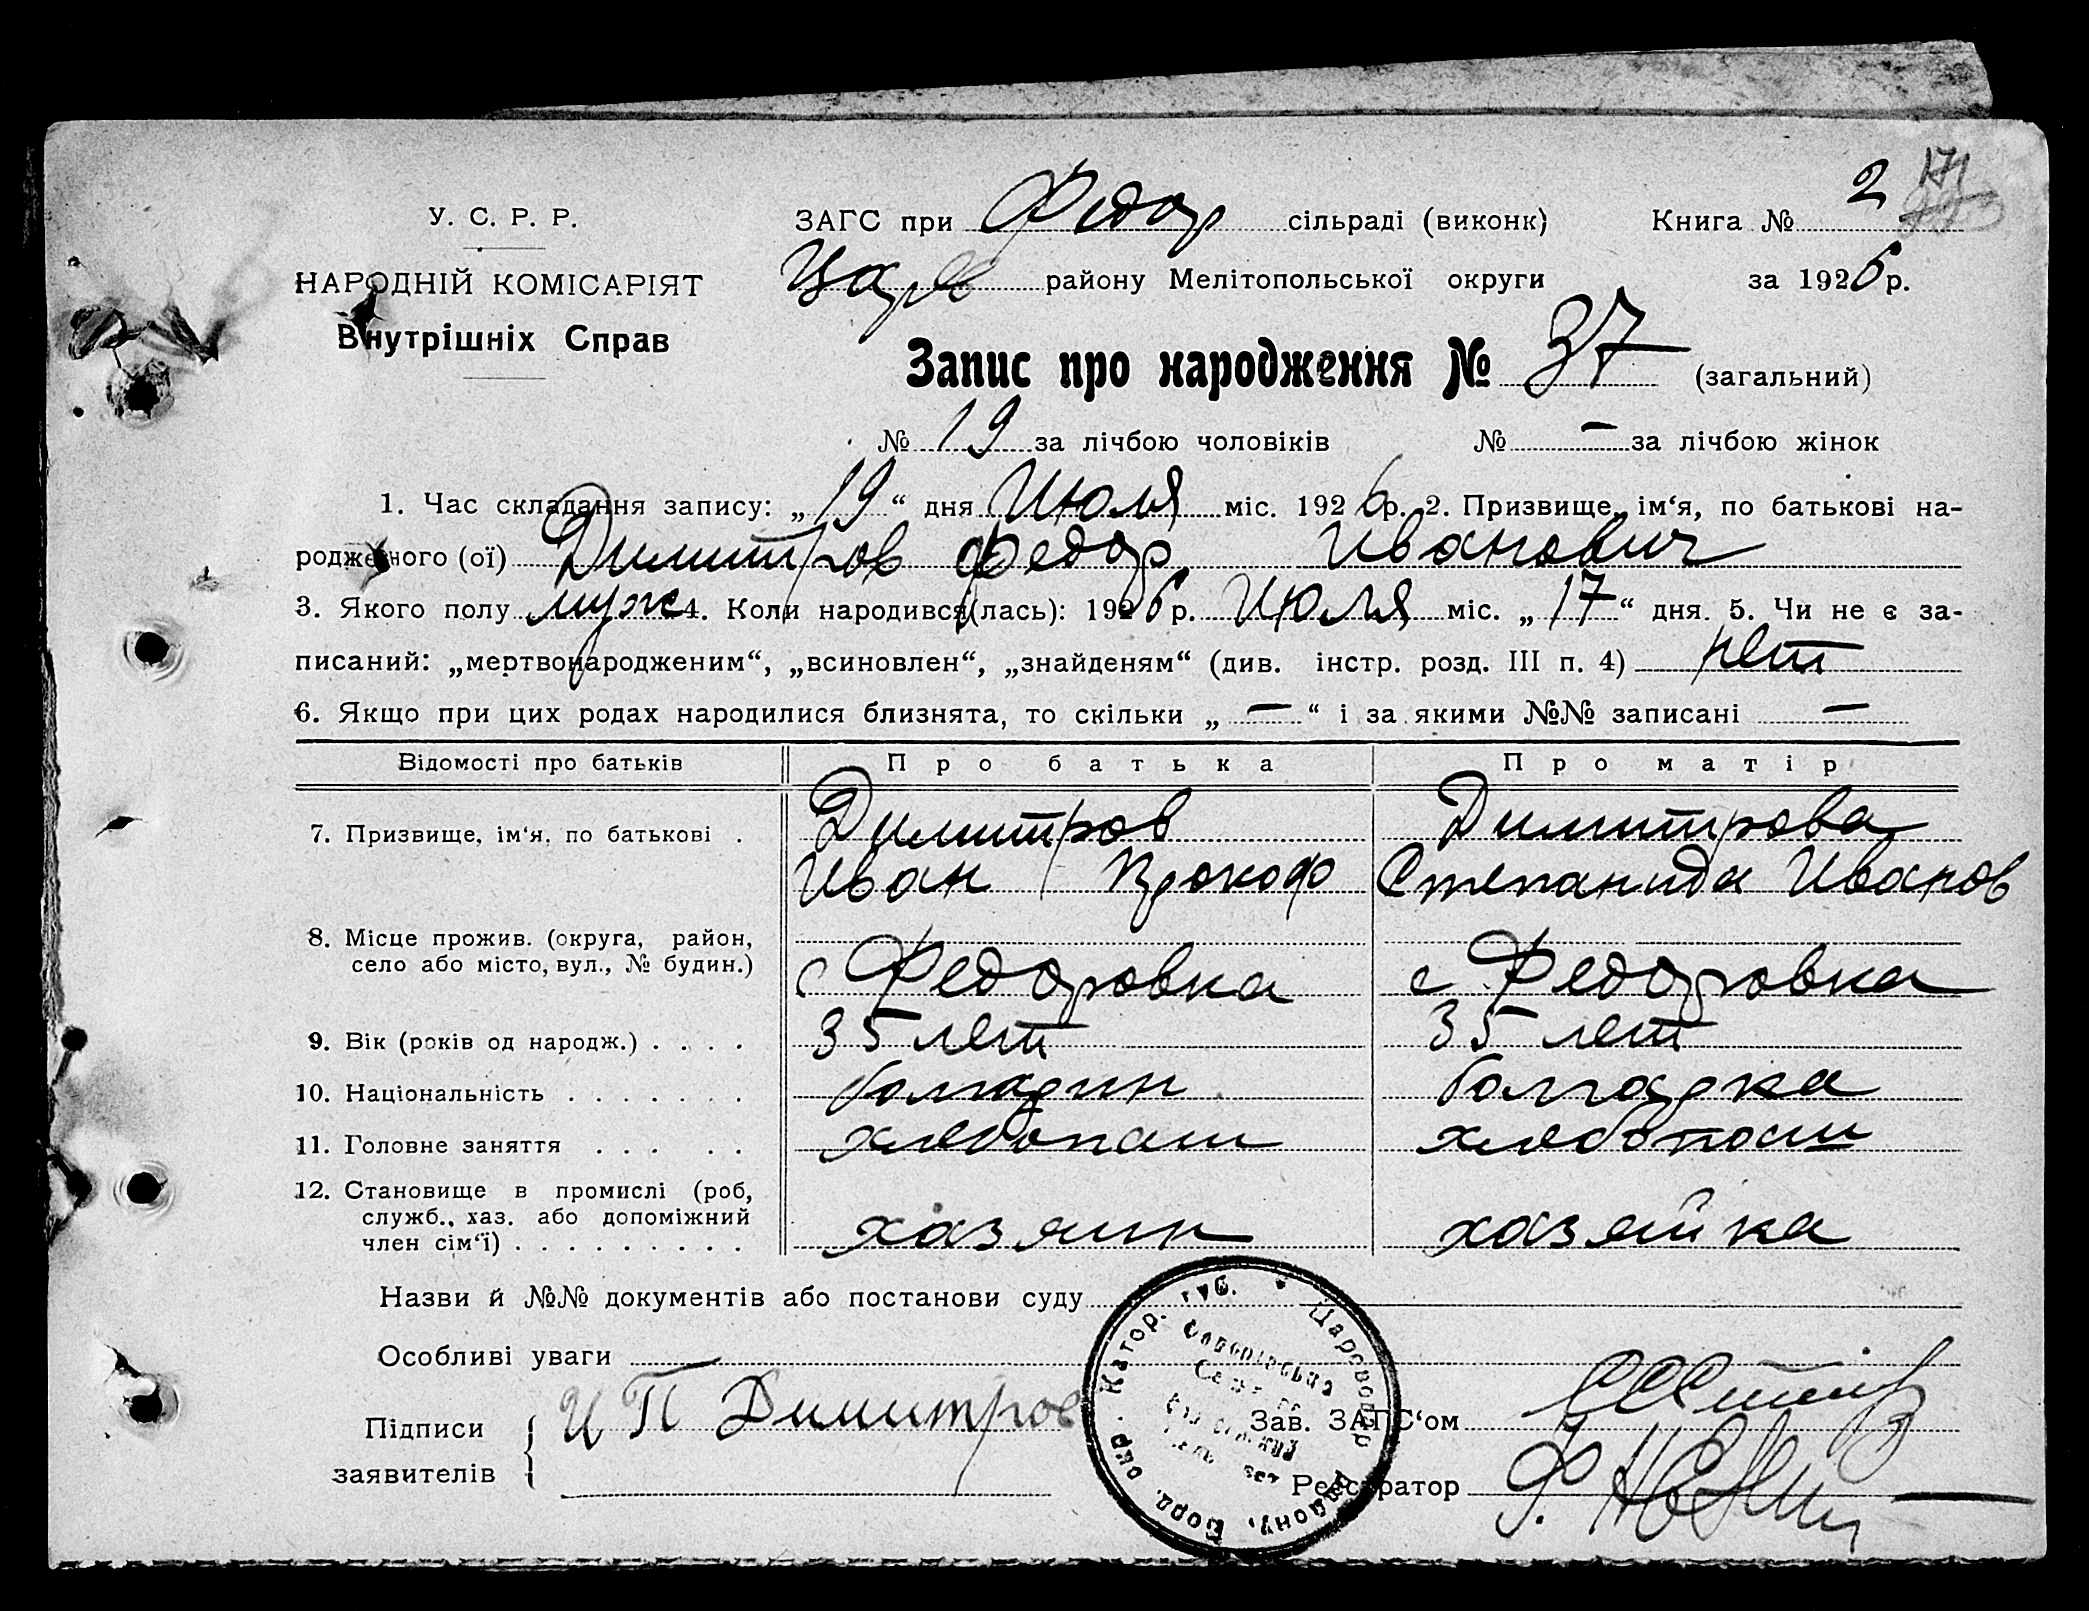 171
У. С. Р. Р. ЗАГС при Федор сільраді (виконк) Книга № 2
НАРОДНІЙ КОМІСАРІЯТ Царев району Мелітопольської округи за 1926 р.
Внутрішніх Справ
Запис про народження № 37 (загальний)
№ 19 за лічбою чоловіків № — за лічбою жінок
1. Час складання запису: „19“ дня Июля міс. 1926 р. 2. Призвище, ім‘я, по батькові на-
родженого (ої) Димитров Федор Иванович
3. Якого полу муж 4. Коли народився(лась): 1926 р. Июля міс. „17“ дня. 5. Чи не є за-
писаний: „мертвонародженим“, „всиновлен“, „знайденям“ (див. інстр. розд. III п. 4) нет
6. Якщо при цих родах народилися близнята, то скільки „—“ і за якими №№ записані —
Відомості про батьків Про батька Про матір
7. Призвище, ім‘я, по батькові . Димитров Димитрова
Иван Прокоф Степанида Иванов
8. Місце прожив. (округа, район,
село або місто, вул., № будин.) с Федоровка с Федоровка
9. Вік (років од народж.) . . . . 35 лет 35 лет
10. Національність . . . . . . . болгарин болгарка
11. Головне заняття . . . . . хлебопаш хлебопаш
12. Становище в промислі (роб,
служб., хаз. або допоміжний
член сім‘ї) . . . . . . . . . хазяин хазяйка
Назви й №№ документів або постанови суду
Особливі уваги
Підписи И П Димитров Зав. ЗАГС‘ом
заявителів Реєстратор
Катор. губ. Цареводар району, Берд. окр.